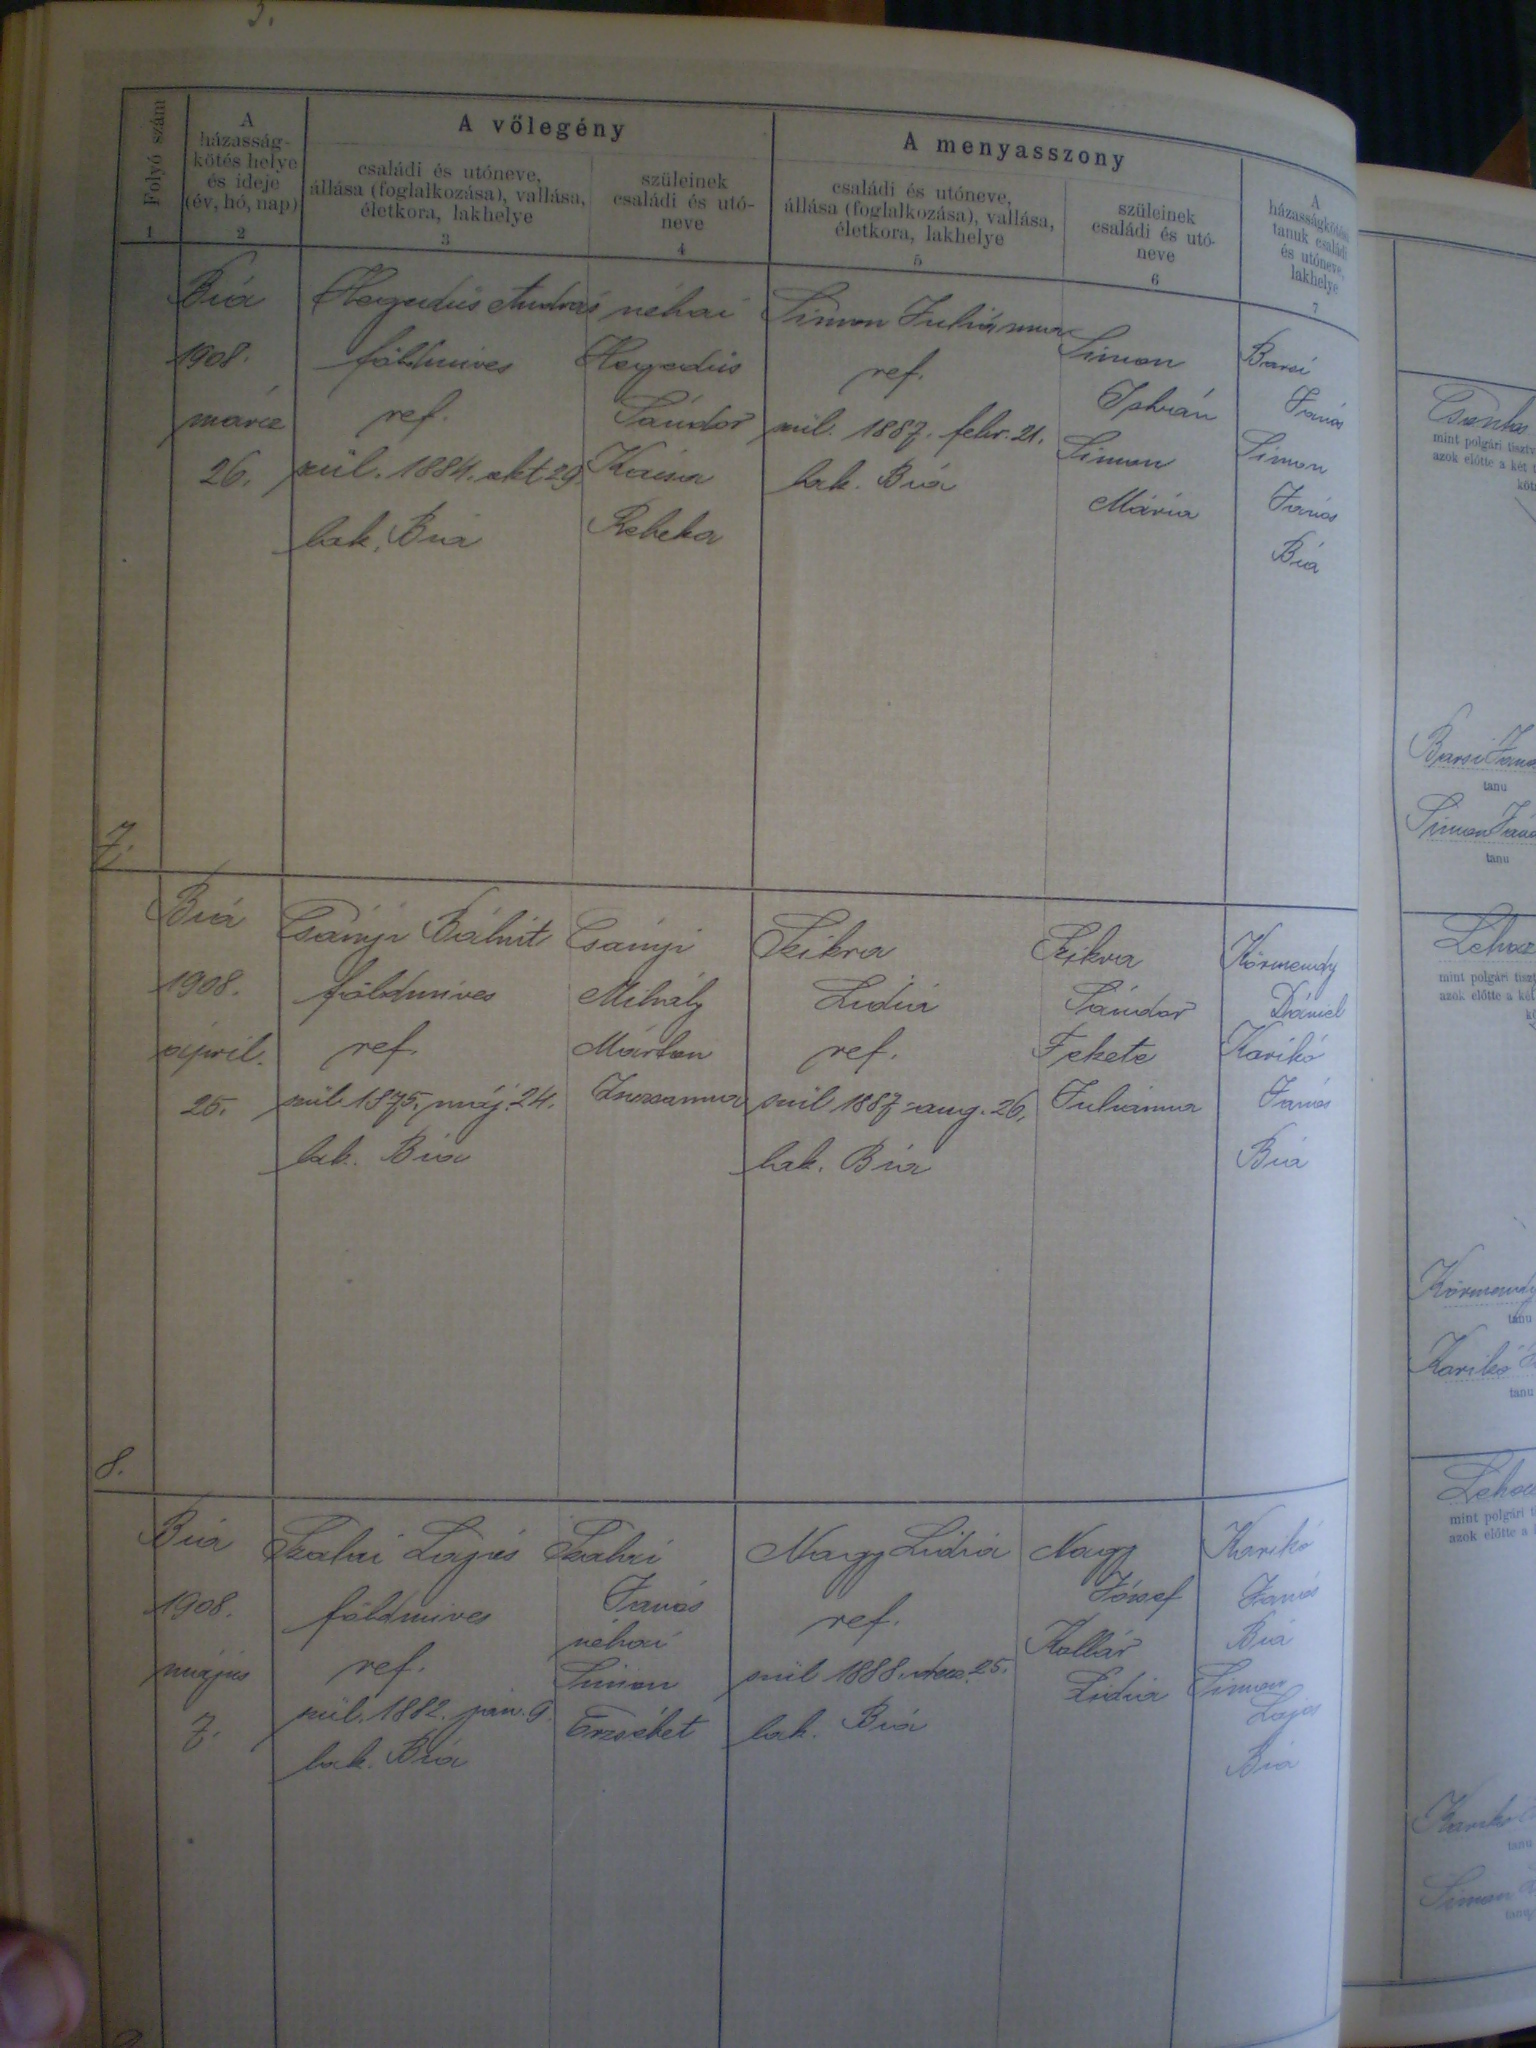 3.
Folyó szám
1
A
házasság-
kötés helye
és ideje
(év, hó, nap)
2
A vőlegény
családi és utóneve,
állása (foglalkozása), vallása,
életkora, lakhelye
3
szüleinek
családi és utó-
neve
4
A menyasszony
családi és utóneve,
állása (foglalkozása), vallása,
életkora, lakhelye
5
szüleinek
családi és utó-
neve
6
A
házasságkötési
tanuk családi
és utóneve,
lakhelye
7
7.
Bia
1908.
márcz
26.
Hegedüs András
földmives
ref.
szül. 1884. okt 29.
lak. Bia
néhai
Hegedüs
Sándor
Rebeka
Simon Juliánna
ref.
szül. 1887. febr. 21.
lak. Bia
Simon
István
Simon
Mária
Barsi
János
Simon
János
Bia
8.
Bia
1908.
ápril.
25.
Csányi Bálint
földmives
ref.
szül. 1875. máj. 24.
lak. Bia
Csányi
Mihály
Márton
Zsuzsanna
Szikra
Lidia
ref.
szül 1887 aug. 26.
lak. Bia
Szikra
Sándor
Fekete
Julianna
Körmendy
Dániel
Karikó
János
Bia
Bia
1908.
május
7.
Szalai Lajos
földmives
ref.
szül. 1882. jan. 9.
lak. Bia
Szalai
János
néhai
Simon
Erzsébet
Nagy Lidia
ref.
szül 1888. dec. 25.
lak. Bia
Nagy
József
Kollár
Lidia
Karikó
János
Bia
Simon
Lajos
Bia
mint polgári tisztv
azok előtte a két t
köt
Barsi János
tanu
Simon János
tanu
mint polgári tiszt
azok előtte a két
Körmendy
tanu
Karikó
tanu
mint polgári t
azok előtte a
Karikó
tanu
Simon
tanu